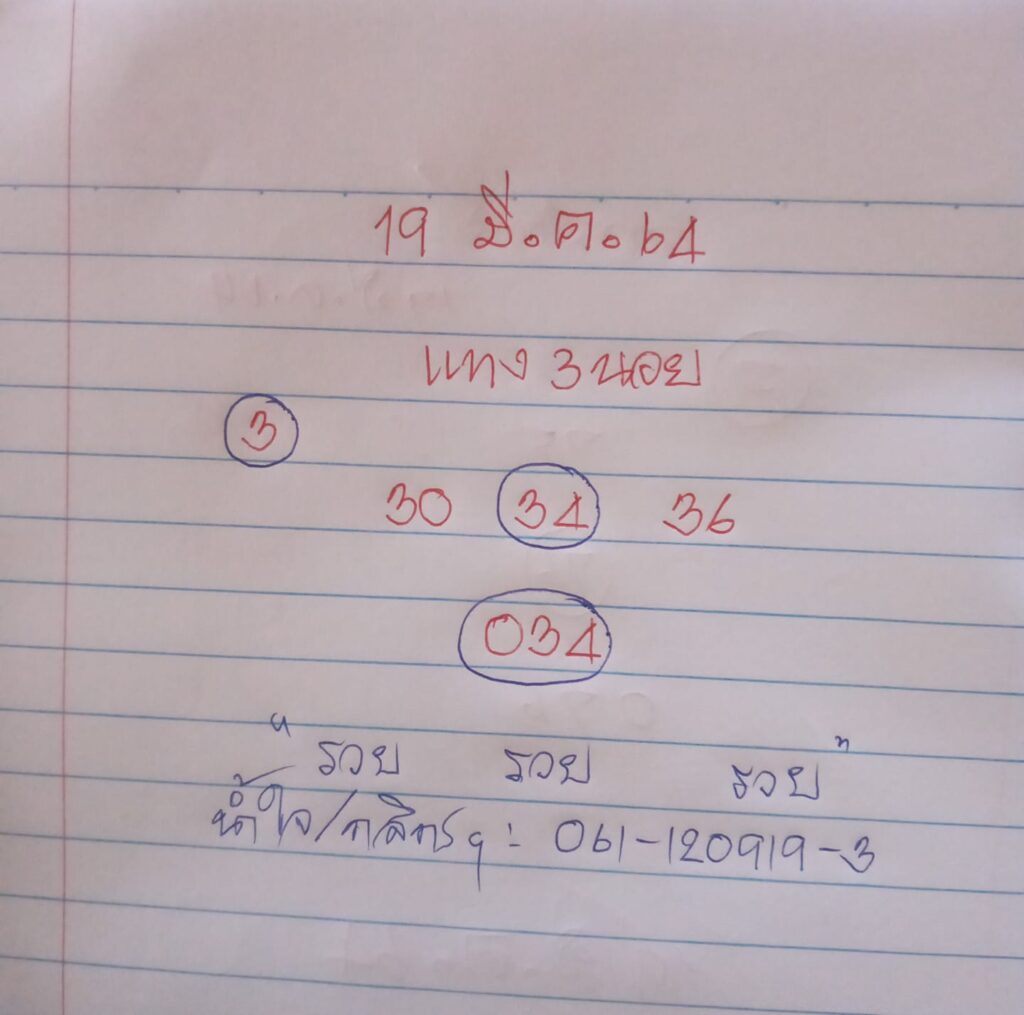 19 มี.ค.64
แทง 3 นอย
3
30 34 36
034
"รวย รวย รวย"
น้ำใจ/กสิกรฯ : 061-120919-3